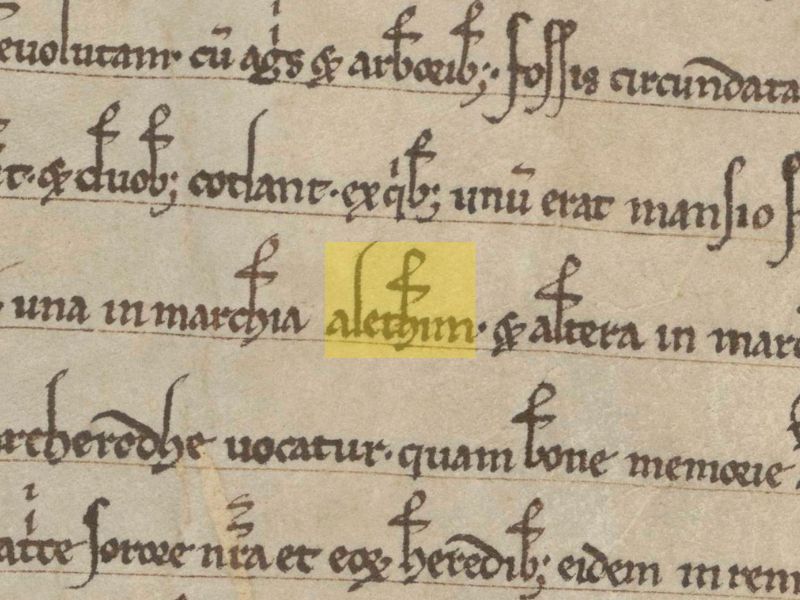 euolutam cū agͥs ⁊ arborib; fossis circūdata
⁊ duob; cotlant· exqͥb; unū erat mansio
una in marchia alethim· ⁊ altera in marc
archerōdhe uocatur· quam bone memorie
sorore nr̄a et eoꝝ herēdib; eidem in rem